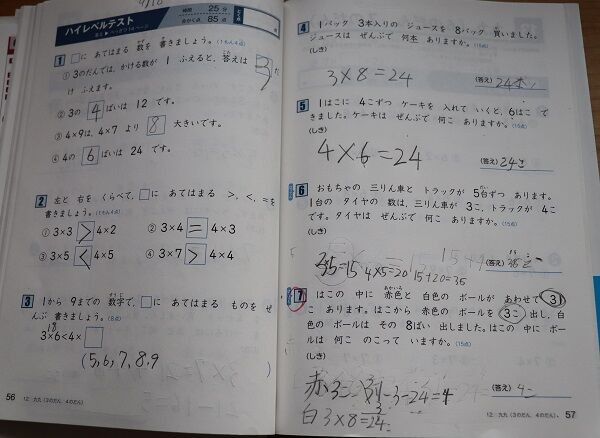 ハイレベルテスト
時間 25分
85点
1 □に あてはまる 数を 書きましょう。(1もん4点)
① 3のだんでは、かける数が 1 ふえると、答えは 3
ふえます。
② 3の 4 ばいは 12 です。
③ 4×9は、4×7 より 8 大きいです。
④ 4の 6 ばいは 24 です。
2 左と 右を くらべて、□に あてはまる >、<、=を
書きましょう。(1もん4点)
① 3×3 > 4×2
② 3×4 = 4×3
③ 3×5 < 4×5
④ 3×7 > 4×4
3 1から 9までの 数字で、□に あてはまる ものを ぜ
んぶ 書きましょう。(8点)
18
3×6<4×□
(5,6,7,8,9)
56
12 九九(3のだん、4のだん)
4 1パック 3本入りの ジュースを 8パック 買いました。
ジュースは ぜんぶで 何本 ありますか。(15点)
(しき)
3×8=24
(答え) 24本
5 1はこに 4こずつ ケーキを 入れて いくと、6はこ で
きました。ケーキは ぜんぶで 何こ ありますか。(15点)
(しき)
4×6=24
(答え) 24こ
6 おもちゃの 三りん車と トラックが 5台ずつ あります。
1台の タイヤの 数は、三りん車が 3こ、トラックが 4こ
です。タイヤは ぜんぶで 何こ ありますか。(15点)
(しき)
3×5=15 4×5=20 15+20=35
(答え) 35こ
7 はこの 中に 赤色と 白色の ボールが あわせて 31
こ あります。はこから 赤色の ボールを 3こ 出し、白
色の ボールは その 8ばい 出しました。はこの 中に ボー
ルは 何こ のこって いますか。(15点)
(しき)
赤3こ 31-3-24=4
白3×8=24
(答え) 4こ
12 九九(3のだん、4のだん)
57